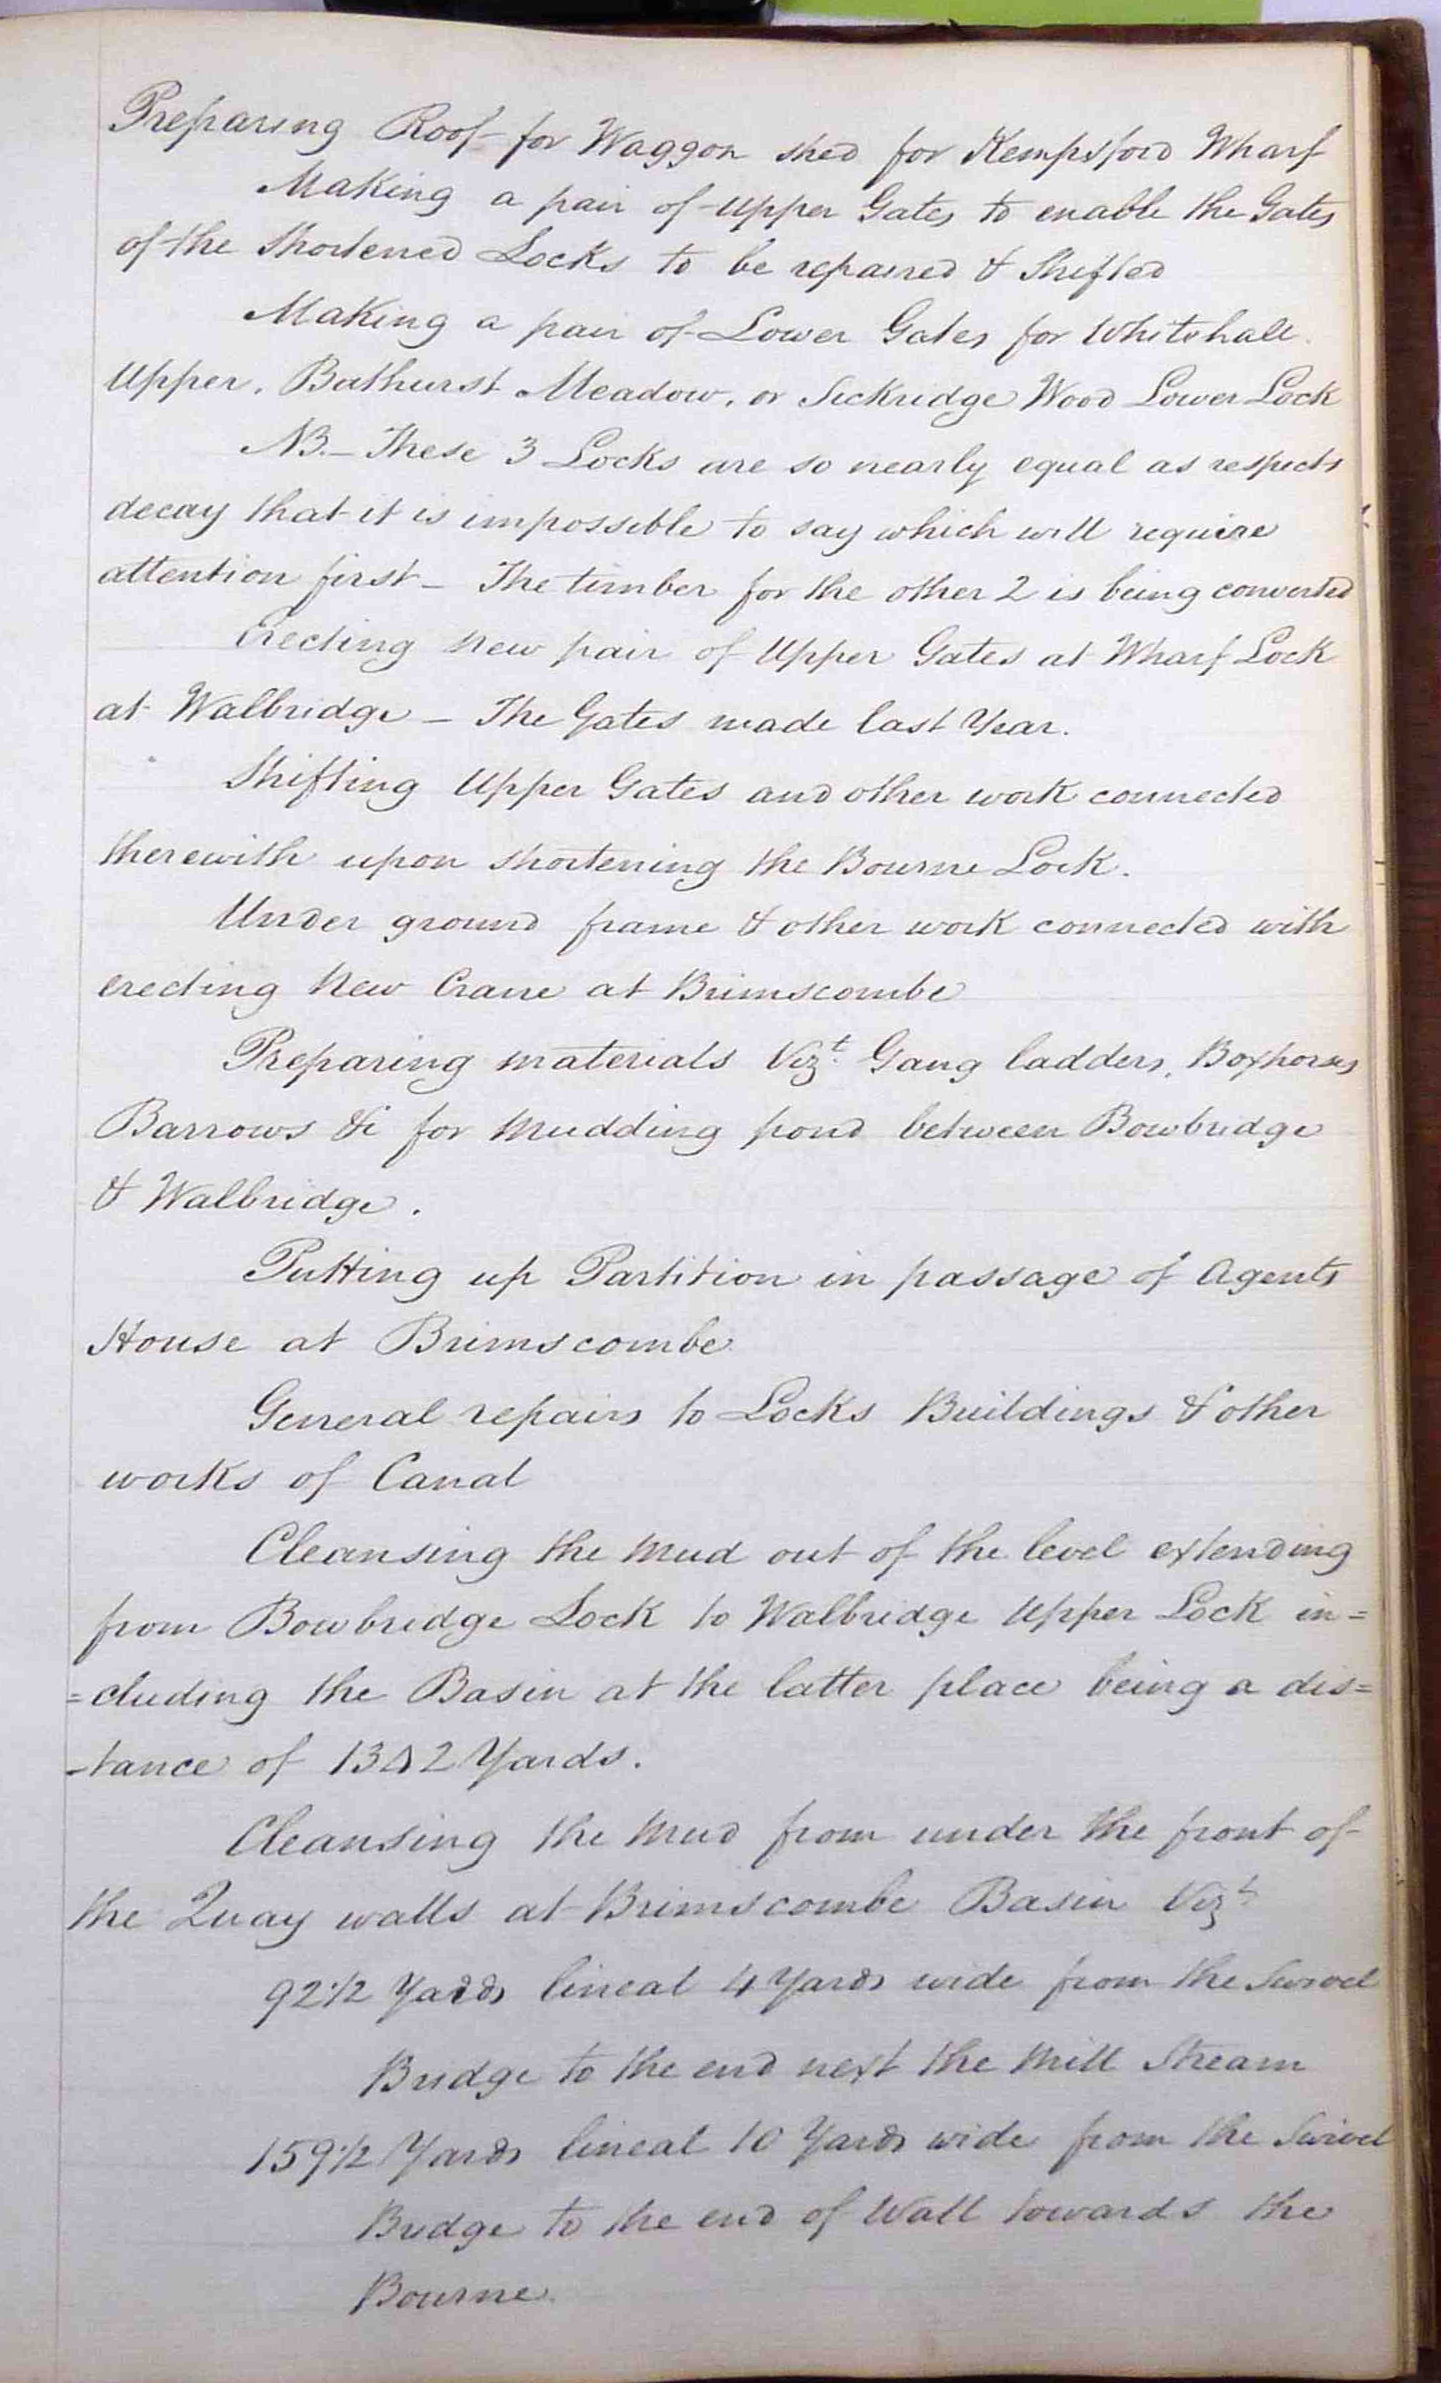 Preparing Roof for Waggon shed for Kempsford Wharf
Making a pair of Upper Gates to enable the Gates
of the Shortened Locks to be repaired & Shifted
Making a pair of Lower Gates for Whitehall
Upper, Bathurst Meadow, or Sickridge Wood Lower Lock
NB.– These 3 Locks are so nearly equal as respects
decay that it is impossible to say which will require
attention first – The timber for the other 2 is being converted
Erecting New pair of Upper Gates at Wharf Lock
at Walbridge – The Gates made last Year.
Shifting Upper Gates and other work connected
therewith upon shortening the Bourne Lock.
Under ground frame & other work connected with
erecting New Crane at Brimscombe
Preparing materials Vizt. Gang ladders, Boxhorses
Barrows &c for Mudding pond between Bowbridge
& Walbridge.
Putting up Partition in passage of Agents
House at Brimscombe
General repairs to Locks Buildings & other
works of Canal
Cleansing the Mud out of the level extending
from Bowbridge Lock to Walbridge Upper Lock in=
=cluding the Basin at the latter place being a dis=
-tance of Yards.
Cleansing the Mud from under the front of
the Quay walls at Brimscombe Basin Vizt
92½ Yards lineal 4 Yards wide from the Swivel
Bridge to the end next the Mill Stream
159½ Yards lineal 10 Yards wide from the Swivel
Bridge to the end of Wall towards the
Bourne